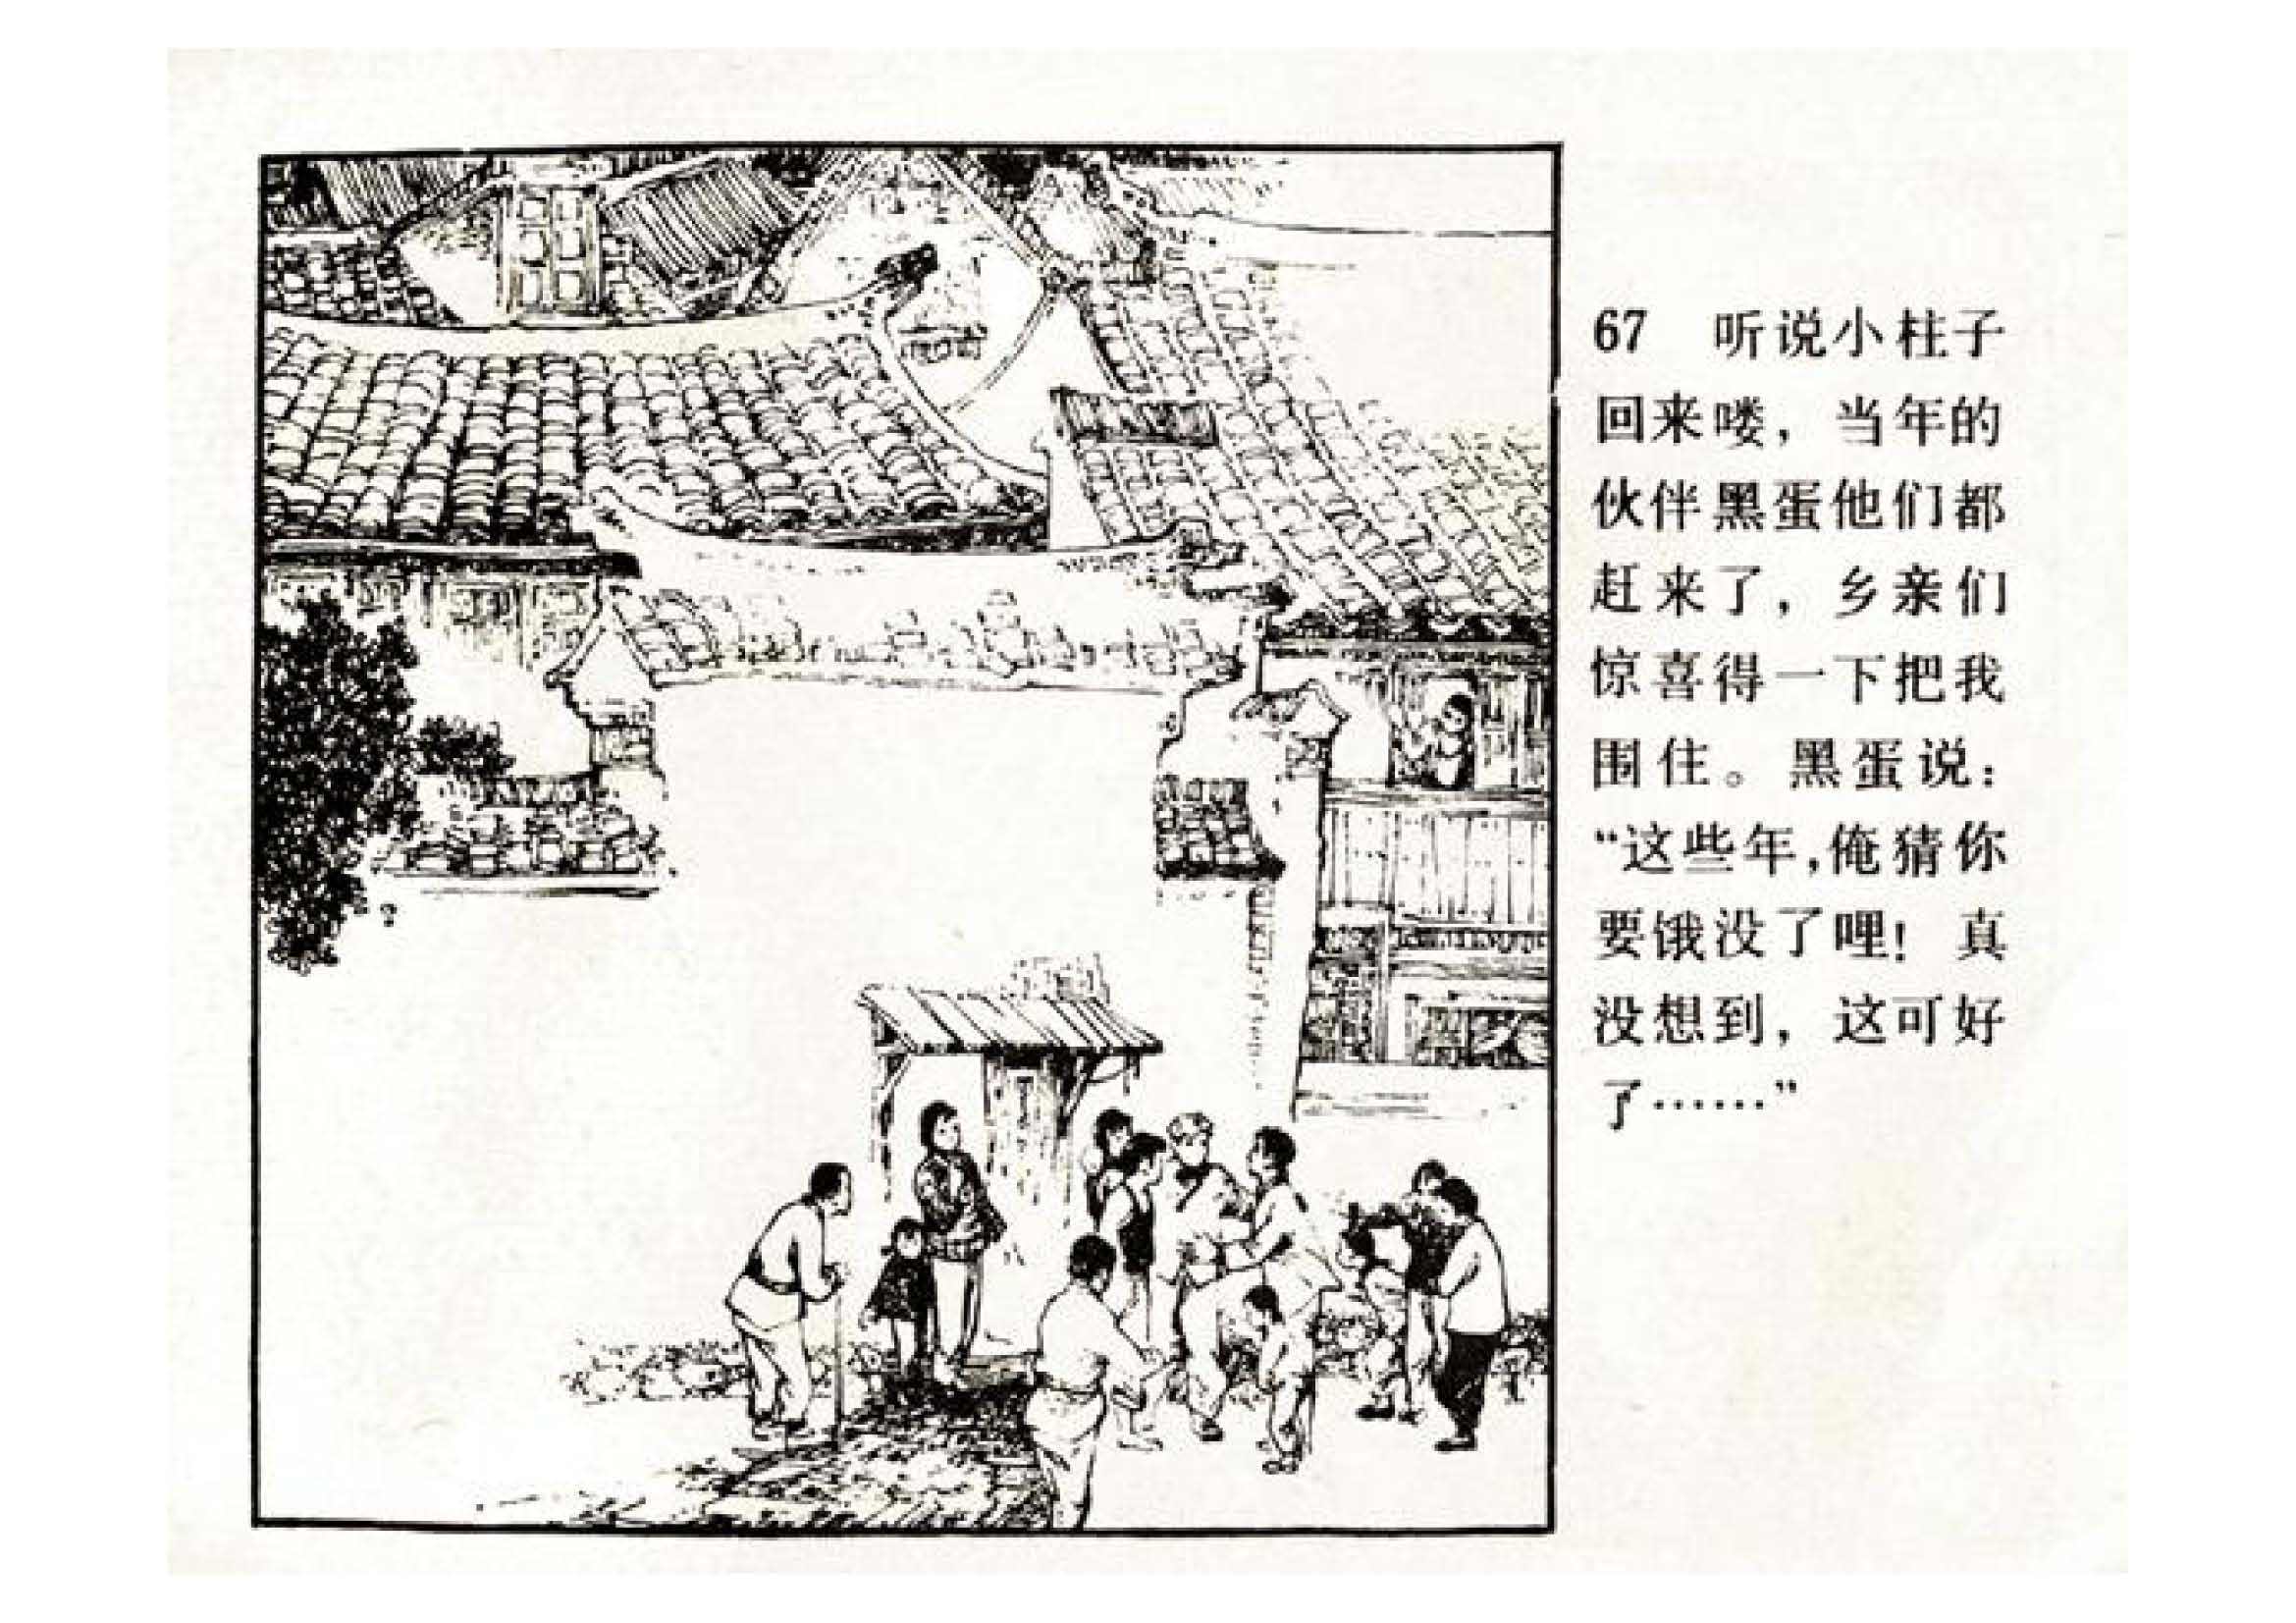 67 听说小柱子
回来喽，当年的
伙伴黑蛋他们都
赶来了，乡亲们
惊喜得一下把我
围住。黑蛋说：
“这些年，俺猜你
要饿没了哩！真
没想到，这可好
了……”